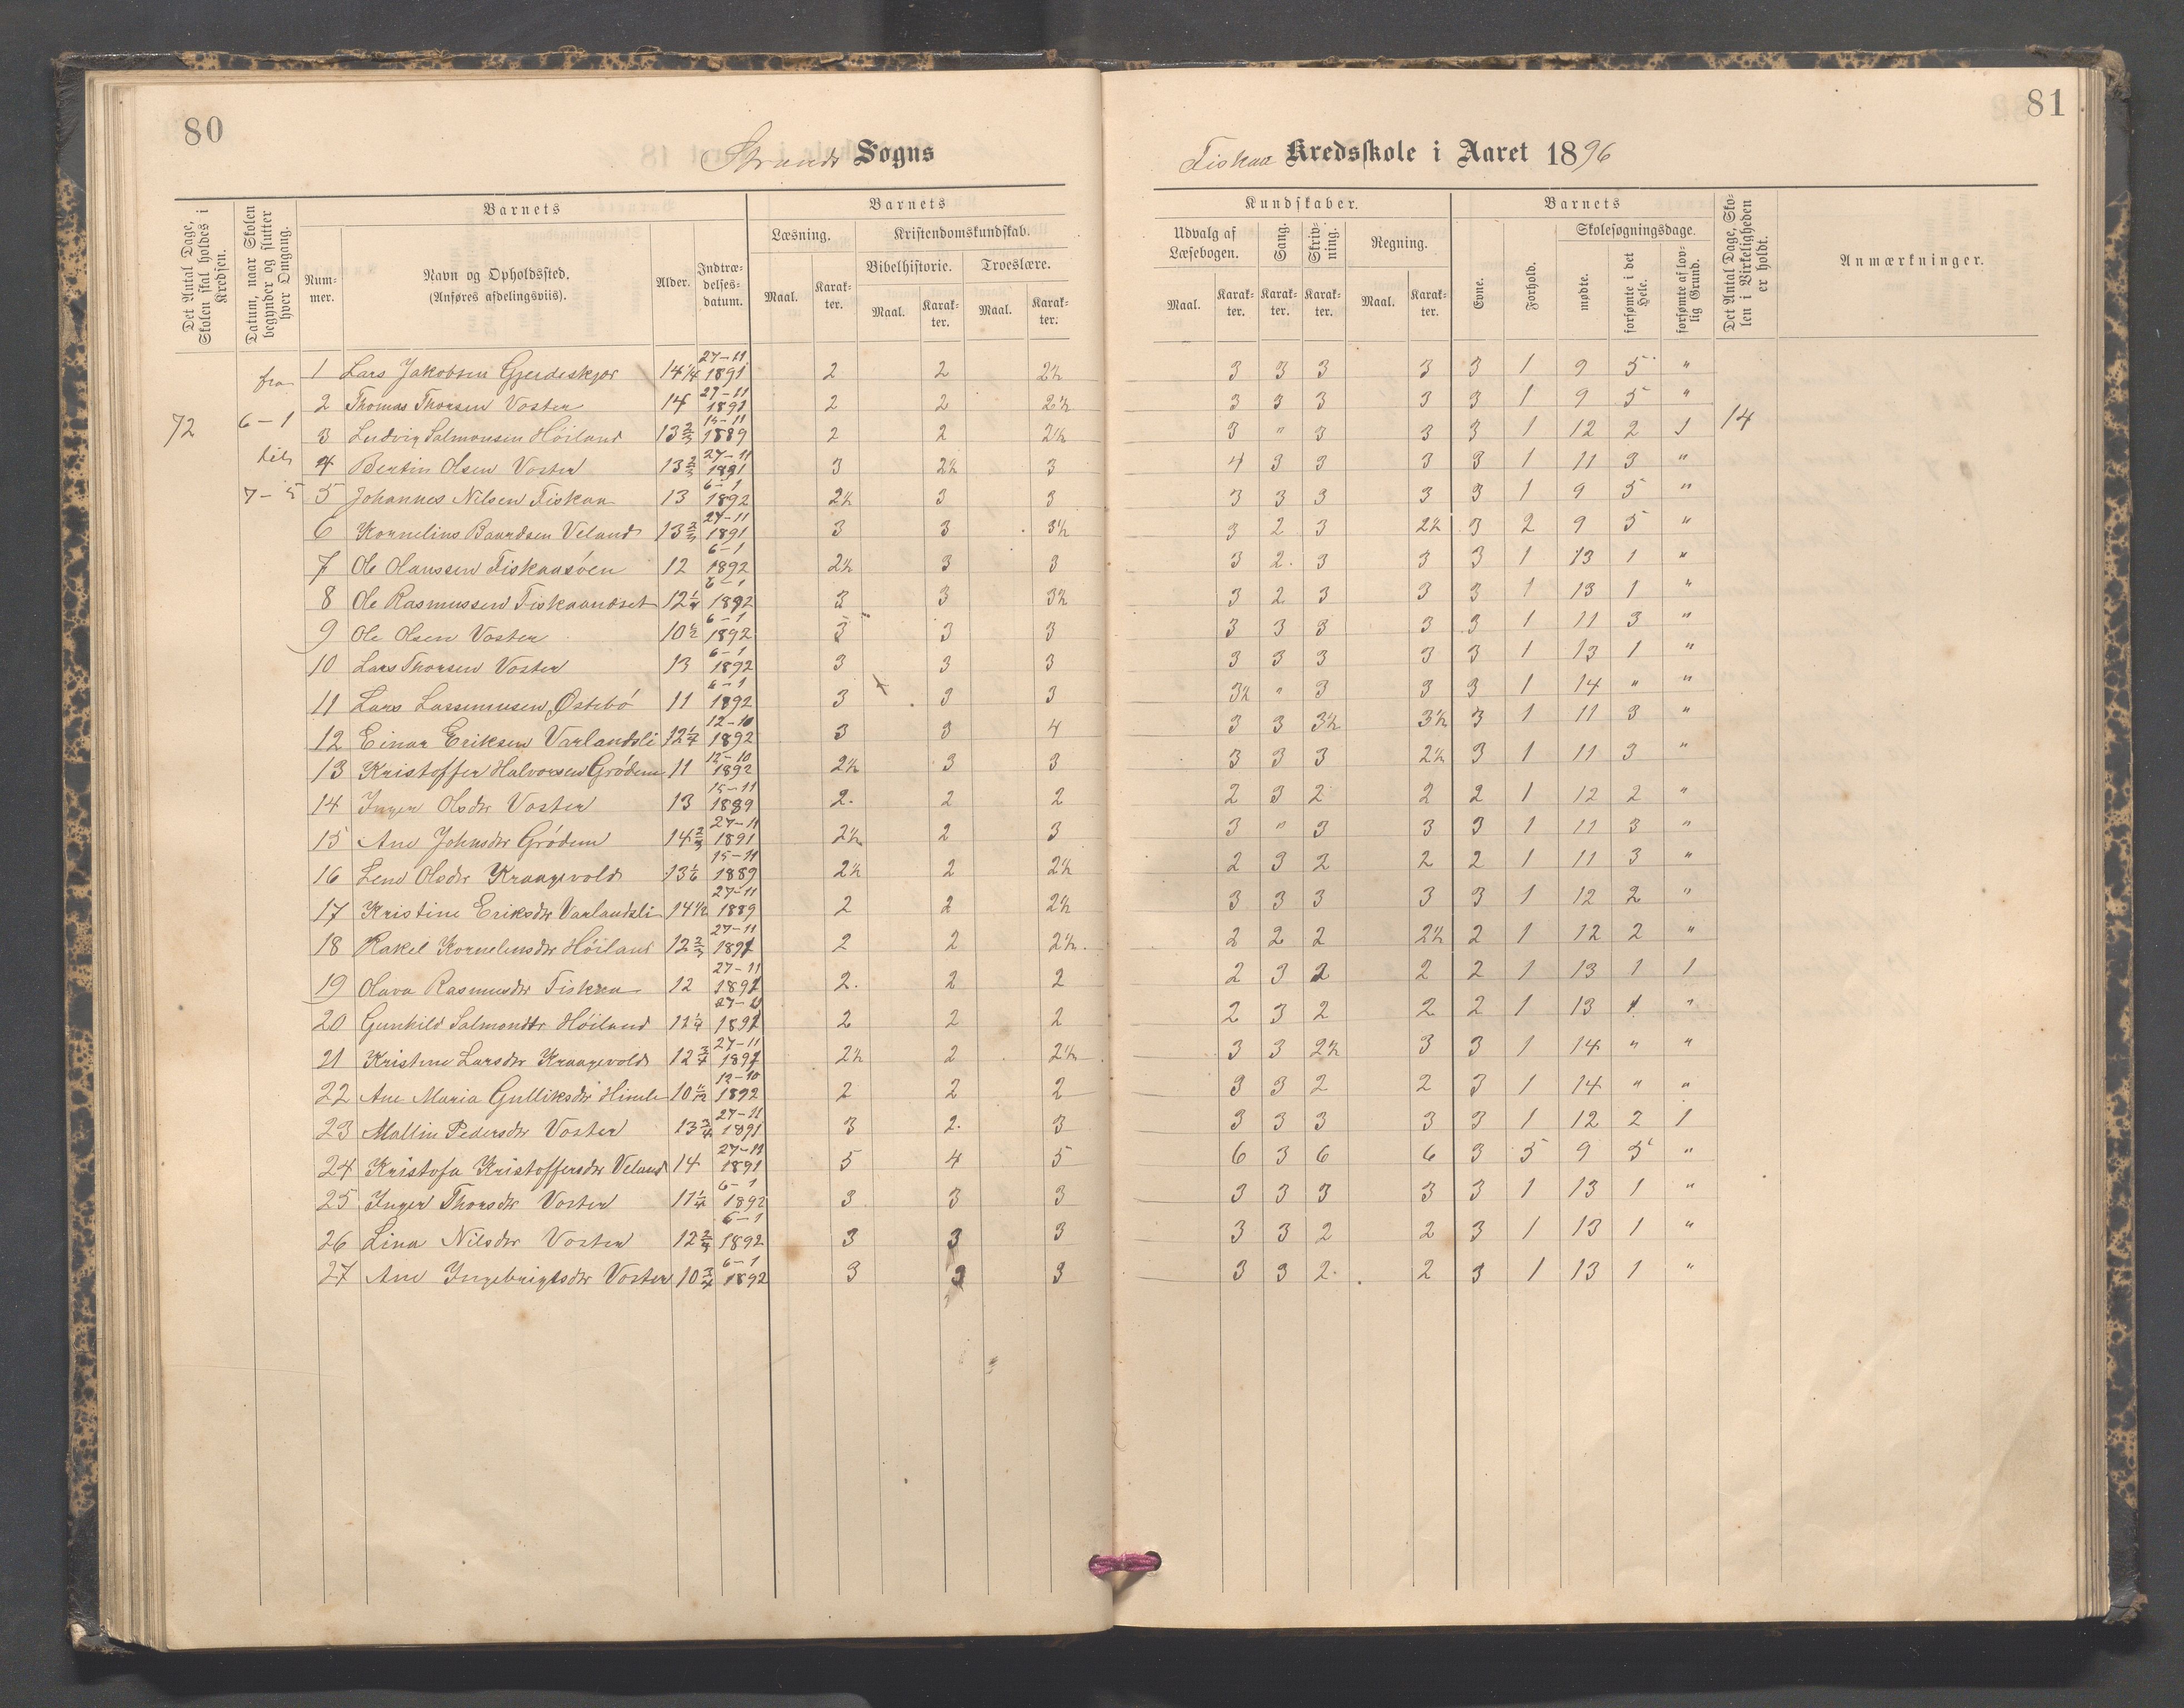 80
Strands Sogns
Det Antal Dage, Skolen skal holdes i Kredsen.
Datum, naar Skolen begynder og slutter hver Omgang.
Barnets
Nummer.
Navn og Opholdssted.
(Anføres afdelingsviis).
Alder.
Indtrædelsesdatum.
Barnets
Læsning.
Kristendomskundskab.
Bibelhistorie.
Troeslære.
Maal.
Karakter.
Maal.
Karakter.
Maal.
Karakter.
72
fra
6-1
til
7-5
1 Lars Jakobsen Gjerdeskjor 14 1/4 27-11 1891 2 2 2½
2 Thomas Thorsen Voster 14 27-11 1891 2 2 2½
3 Ludvig Salmonsen Höiland 13 2/3 15-11 1889 2 2 2½
4 Bertin Olsen Voster 13 2/3 27-11 1891 3 2½ 3
5 Johannes Nilsen Fiskaa 13 6-1 1892 2½ 3 3
6 Kornelius Baardsen Veland 13 2/3 27-11 1891 3 3 3½
7 Ole Hanssen Fiskaasöen 12 6-1 1892 2½ 3 3
8 Ole Rasmussen Fiskaandset 12 1/4 6-1 1892 3 3 3½
9 Ole Olsen Voster 10 ½ 6-1 1892 3 3 3
10 Lars Thorsen Voster 13 6-1 1892 3 3 3
11 Lars Lassemusen Östebö 11 6-1 1892 3 3 3
12 Einar Eriksen Varlandsli 12 1/4 12-10 1892 3 3 4
13 Kristoffer Halvorsen Grödem 11 12-10 1892 2½ 3 3
14 Inger Olsdtr Voster 13 15-11 1889 2. 2 2
15 Ane Johnsdtr Grödem 14 2/3 27-11 1891 2½ 2 3
16 Lene Olsdtr Kraagevold 13 1/6 15-11 1889 2½ 2 2½
17 Kristine Eriksdtr Varlandsli 14 ½ 27-11 1889 2 2 2½
18 Rakel Korneliusdtr Höiland 12 2/3 27-11 1891 2 2 2½.
19 Olava Rasmusdtr Fiskaa 12 27-11 1891 2. 2 2
20 Gunhild Salmondtr Höiland 11 1/4 27-11 1891 2 2 2
21 Kristine Larsdtr Kraagevold 12 3/4 27-11 1891 2½ 2 2½
22 Ane Maria Gulliksdtr Himle 10 11/12 12-10 1892 2 2 2
23 Mallin Pedersdtr Voster 13 3/4 27-11 1891 3 2. 3
24 Kristofa Kristoffersdtr Veland 14 27-11 1891 5 4 5
25 Inger Thorsdtr Voster 11 1/4 6-1 1892 3 3 3
26 Lina Nilsdtr Voster 12 2/3 6-1 1892 3 3 3
27 Ane Ingebrigtsdtr Voster 10 3/4 6-1 1892 3 3 3
81
Fiskaa Kredsskole i Aaret 1896
Kundskaber.
Udvalg af Læsebogen.
Sang.
Skrivning.
Regning.
Maal.
Karakter.
Karakter.
Karakter.
Maal.
Karakter.
Barnets
Evne.
Forhold.
Skolesøgningsdage.
mødte.
forsømte i det Hele.
forsømte af lovlig Grund.
Det Antal Dage, Skolen i Virkeligheden er holdt.
Anmærkninger.
3 3 3 3 3 1 9 5 "
3 3 3 3 3 1 9 5 "
14
3 " 3 3 3 1 12 2 1
4 3 3 3 3 1 11 3 "
3 3 3 3 3 1 9 5 "
3 2 3 2½ 3 2 9 5 "
3 2. 3 3 3 1 13 1 "
3 2 3 3 3 1 13 1 "
3 3 3 3 3 1 11 3 "
3 3 3 3 3 1 13 1 "
3½ " 3 3 3 1 14 " "
3 3 3½ 3½ 3 1 11 3 "
3 3 3 2½ 3 1 11 3 "
2 3 2 2 2 1 12 2 "
3 " 3 3 3 1 11 3 "
2 3 2 2 2 1 11 3 "
3 3 3 3 3 1 12 2 "
2 2 2 2½ 2 1 12 2 "
2 3 2 2 2 1 13 1 1
2 3 2 2 2 1 13 1 "
3 3 2½ 3 3 1 14 " "
3 3 2 2 3 1 14 " "
3 3 3 3 3 1 12 2 1
6 3 6 6 3 5 9 5 "
3 3 3 3 3 1 13 1 "
3 3 2 2 3 1 13 1 "
3 3 2. 2 3 1 13 1 "